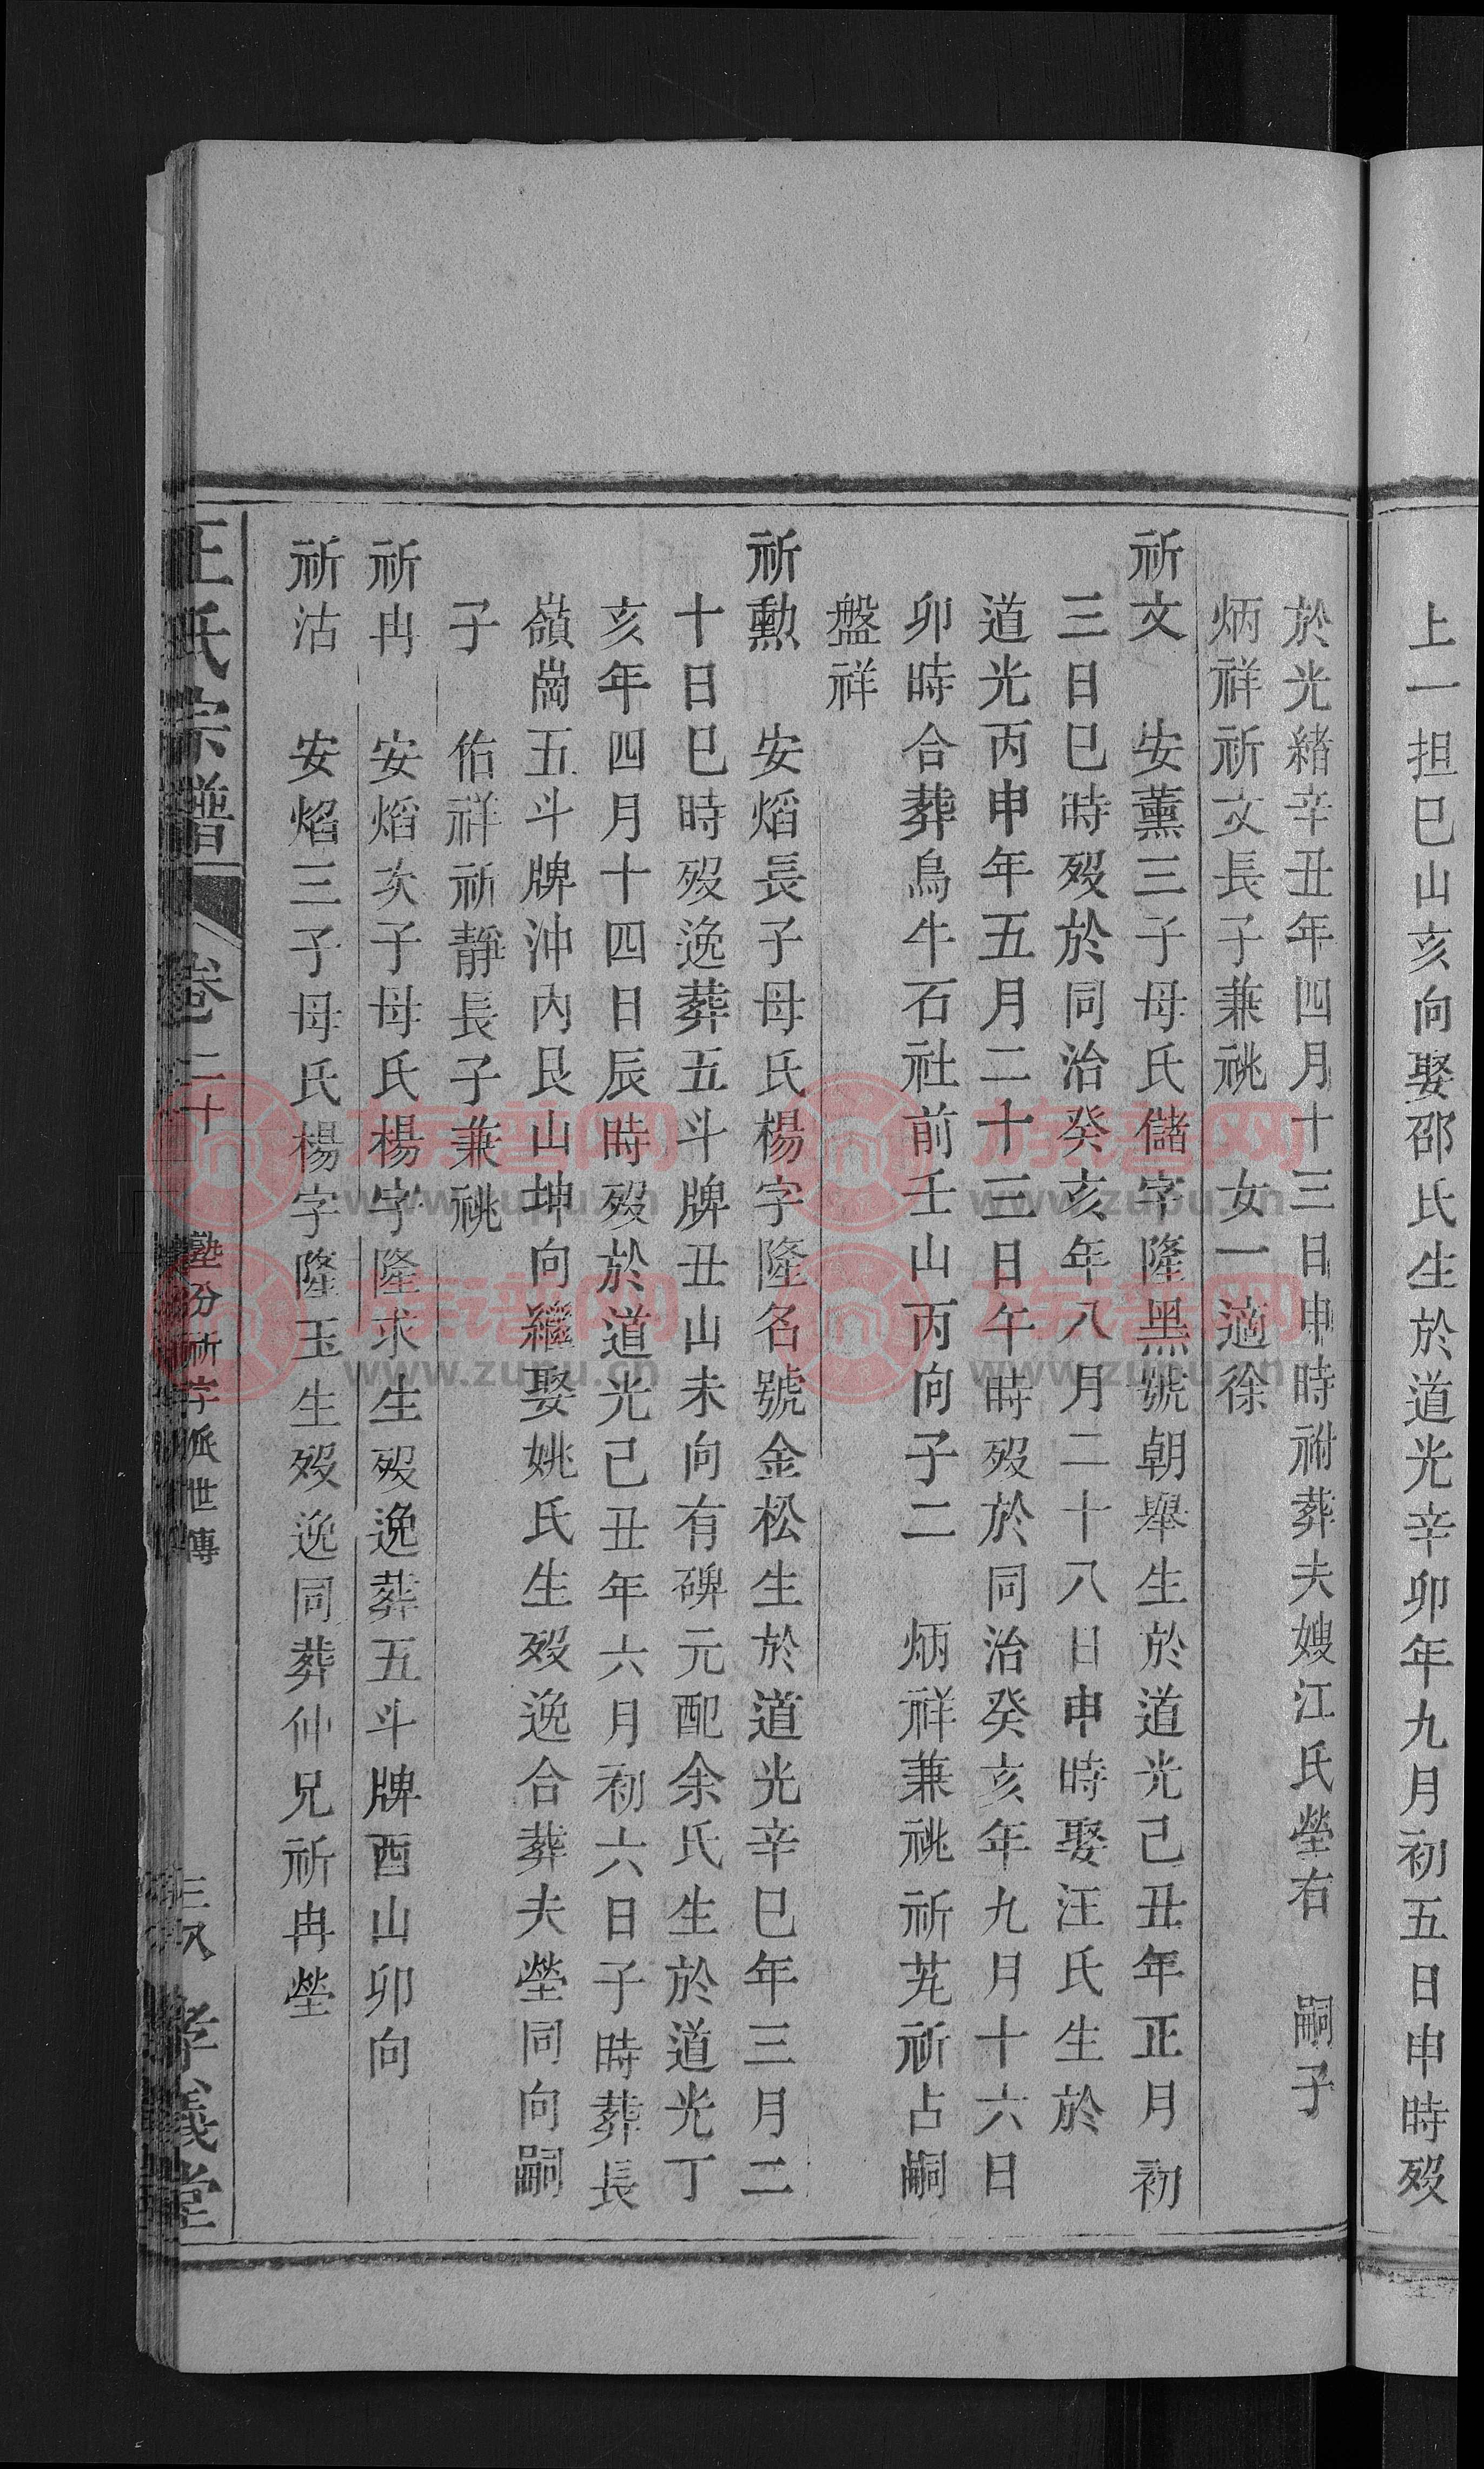 上一担巳山亥向娶邵氏生於道光辛卯年九月初五日申時歿
於光緒辛丑年四月十三日申時祔葬夫嫂江氏塋右　嗣子
炳祥祈文長子兼祧　女一適徐
祈文　安薰三子母氏儲字隆黑號朝舉生於道光己丑年正月初
三日巳時歿於同治癸亥年八月二十八日申時娶汪氏生於
道光丙申年五月二十三日午時歿於同治癸亥年九月十六日
卯時合葬烏牛石社前壬山丙向子二　炳祥兼祧祈芃祈占嗣
盤祥
祈勲　安熖長子母氏楊字隆名號金松生於道光辛巳年三月二
十日巳時歿逸葬五斗牌丑山未向有碑元配余氏生於道光丁
亥年四月十四日辰時歿於道光己丑年六月初六日子時葬長
嶺崗五斗牌沖內艮山坤向繼娶姚氏生歿逸合葬夫塋同向嗣
子　佑祥祈靜長子兼祧
祈冉　安熖次子母氏楊字隆求生歿逸葬五斗牌酉山卯向
祈沽　安熖三子母氏楊字隆玉生歿逸同葬仲兄祈冉塋
王氏宗譜　卷二十　塾份祈字派世傳　三八　孝義堂
族谱网
www.zupu.cn
族谱网
www.zupu.cn
族谱网
www.zupu.cn
族谱网
www.zupu.cn